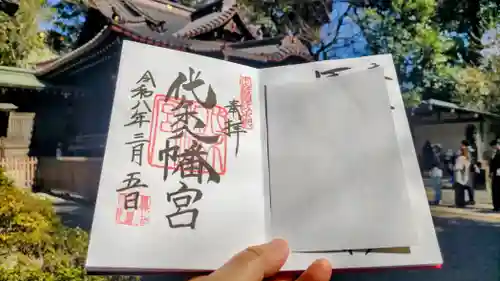 奉拝
代々木八幡宮
令和八年三月五日